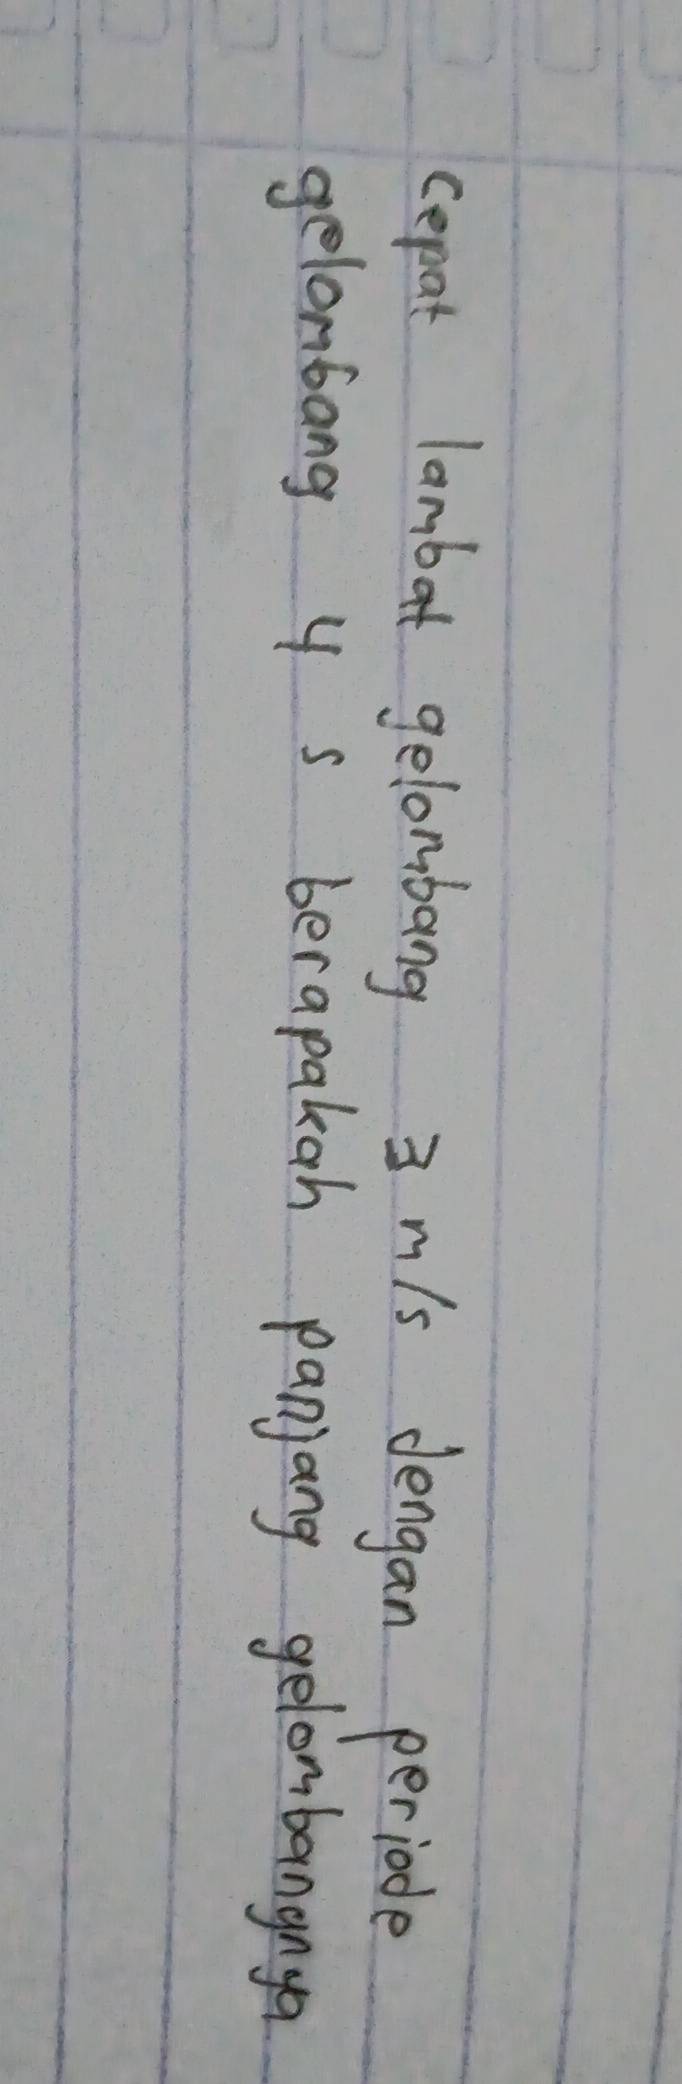 Cepat lambat gelombang 3 m/s dengan periode
gelombang 4 s berapakah panjang gelombangnya